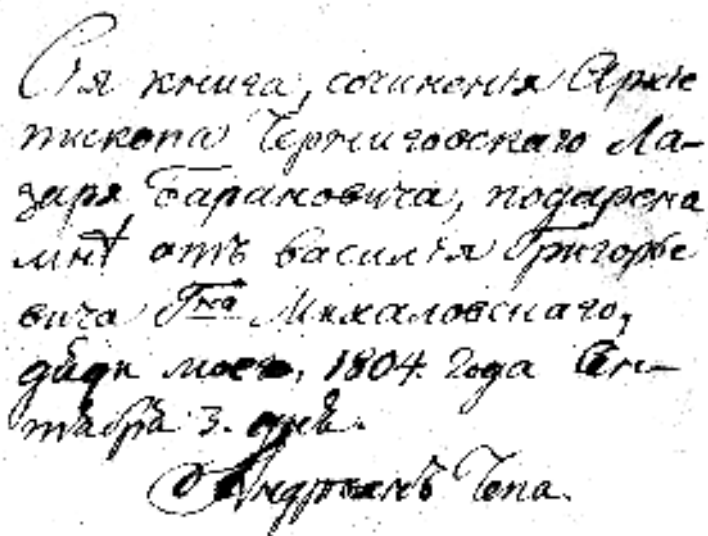 Сія книга, сочиненія Архіе
пископа Черниговскаго Ла-
заря Барановича, подарена
мнѣ отъ Василія Григорье
вича Гна Михаловскаго,
дяди моего, 1804 года Сен-
тября 3. дня.
Андріанъ Чепа.